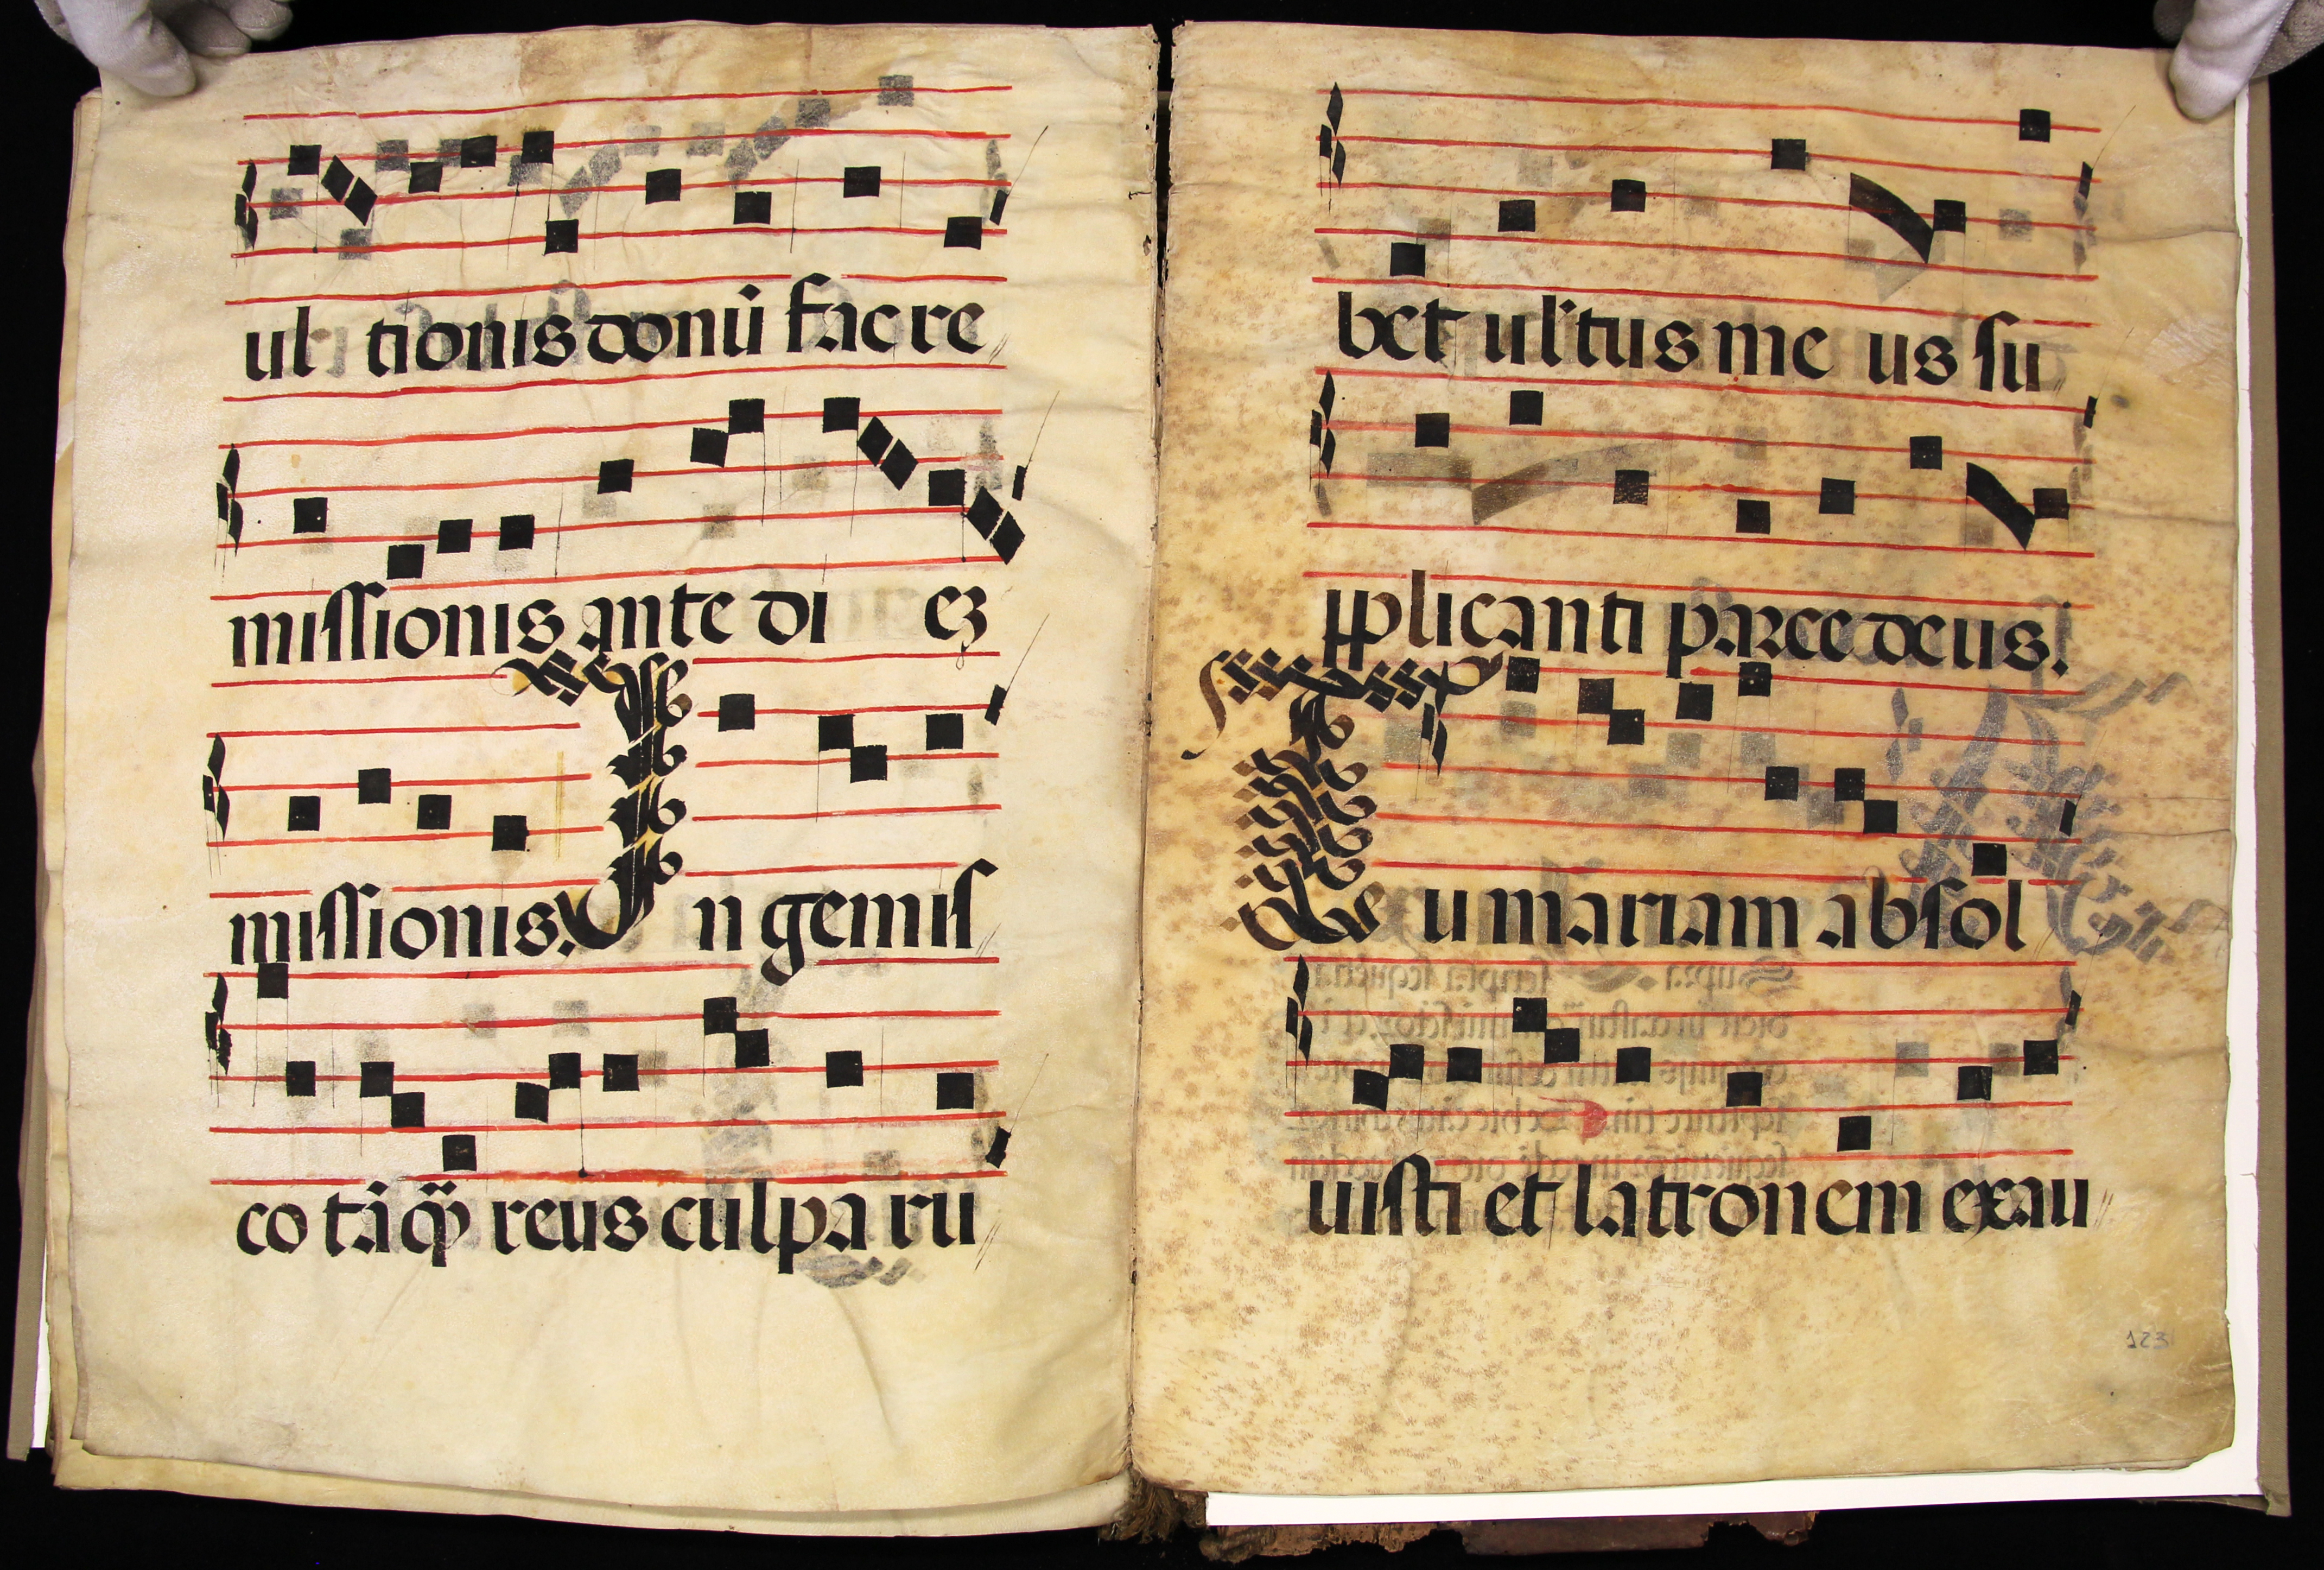 ul tionis donũ fac re
missionis ante di eʒ
missionis. In gemis
co tãq̃ reus culpa ru
bet ultus me us su
pplicanti parce deus.
Qu mariam absol
uisti et latronem exau
123